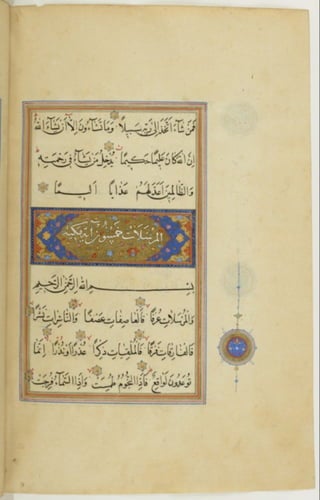 فَمَنْ شَاءَ اتَّخَذَ إِلَىٰ رَبِّهِ سَبِيلًا وَمَا تَشَاءُونَ إِلَّا أَنْ يَشَاءَ اللَّهُ
إِنَّ اللَّهَ كَانَ عَلِيمًا حَكِيمًا يُدْخِلُ مَنْ يَشَاءُ فِي رَحْمَتِهِ
وَالظَّالِمِينَ أَعَدَّ لَهُمْ عَذَابًا أَلِيمًا
المرسلات خمسون آية مكية
بِسْمِ اللَّهِ الرَّحْمَٰنِ الرَّحِيمِ
وَالْمُرْسَلَاتِ عُرْفًا فَالْعَاصِفَاتِ عَصْفًا وَالنَّاشِرَاتِ نَشْرًا
فَالْفَارِقَاتِ فَرْقًا فَالْمُلْقِيَاتِ ذِكْرًا عُذْرًا أَوْ نُذْرًا إِنَّمَا
تُوعَدُونَ لَوَاقِعٌ فَإِذَا النُّجُومُ طُمِسَتْ وَإِذَا السَّمَاءُ فُرِجَتْ